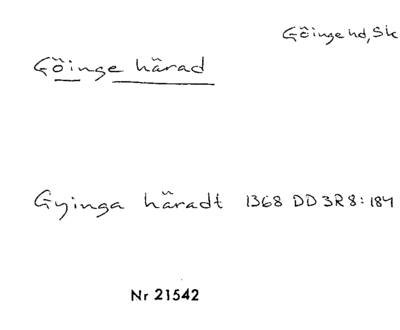 Göinge hd, Sk
Göinge härad
Gyinga häradt 1368 DD 3R 8:184
Nr 21542